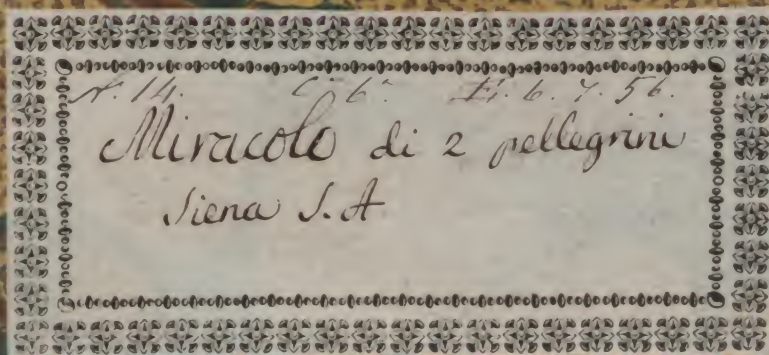 N. 14. C. 6. Fi. 6. 7. 56.
Miracolo di 2 pellegrini
Siena S. A